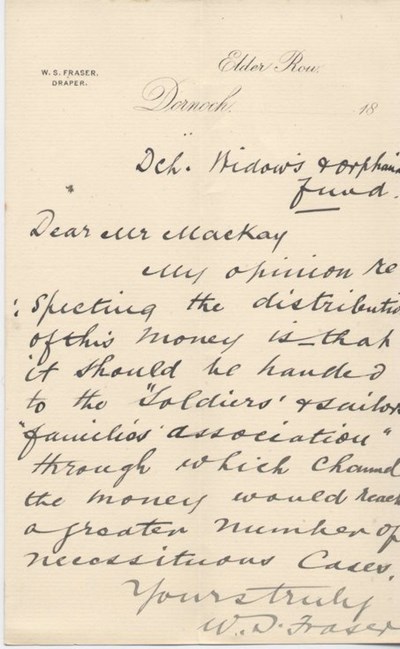 W. S. FRASER,
DRAPER.
Elder Row,
Dornoch, 18
Dch. Widows & orphans
fund.
Dear Mr Mackay
My opinion re
: specting the distributio
of this money is that
it should be handed
to the "Soldiers' & sailors
"families' association"
through which Channel
the money would reach
a greater number of
necessituous Cases.
Yours truly
W. S. Fraser